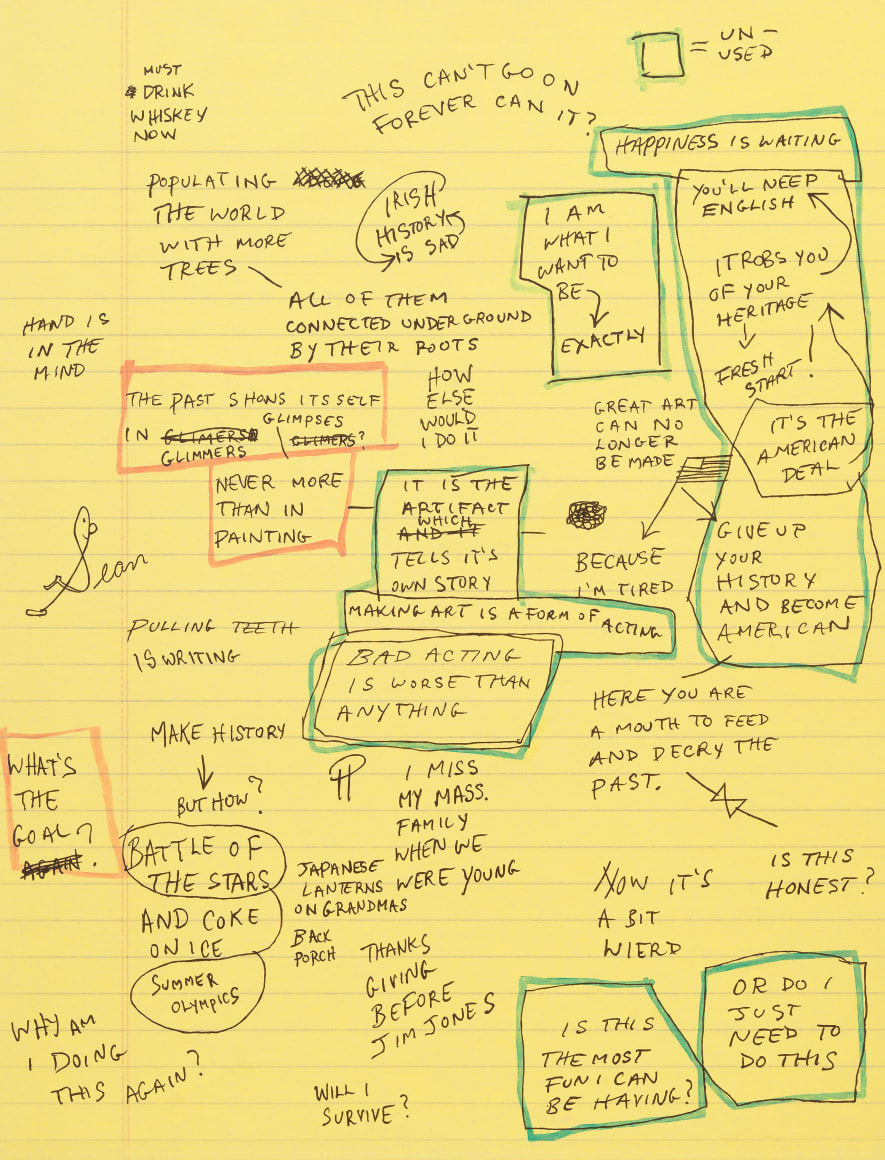 UN-
= USED
MUST
DRINK
WHISKEY
NOW
THIS CAN'T GO ON
FOREVER CAN IT?
HAPPINESS IS WAITING
YOU'LL NEED
ENGLISH
POPULATING
THE WORLD
WITH MORE
TREES
IRISH
HISTORY
IS SAD
I AM
WHAT I
WANT TO
BE
EXACTLY
IT ROBS YOU
OF YOUR
HERITAGE
FRESH
START!
ALL OF THEM
CONNECTED UNDERGROUND
BY THEIR ROOTS
HAND IS
IN THE
MIND
THE PAST SHOWS ITSSELF
GLIMPSES
IN GLIMERS GLIMERS?
GLIMMERS
HOW
ELSE
WOULD
I DO IT
GREAT ART
CAN NO
LONGER
BE MADE
IT'S THE
AMERICAN
DEAL
NEVER MORE
THAN IN
PAINTING
IT IS THE
ARTIFACT
WHICH
AND IT
TELLS IT'S
OWN STORY
BECAUSE
I'M TIRED
GIVE UP
YOUR
HISTORY
AND BECOME
AMERICAN
Sean
MAKING ART IS A FORM OF ACTING
PULLING TEETH
IS WRITING
BAD ACTING
IS WORSE THAN
ANYTHING
HERE YOU ARE
A MOUTH TO FEED
AND DECRY THE
PAST.
WHAT'S
THE
GOAL?
AGAIN?
MAKE HISTORY
BUT HOW?
BATTLE OF
THE STARS
AND COKE
ON ICE
SUMMER
OLYMPICS
I MISS
MY MASS.
FAMILY
WHEN WE
WERE YOUNG
JAPANESE
LANTERNS
ON GRANDMAS
BACK
PORCH
THANKS
GIVING
BEFORE
JIM JONES
IS THIS
HONEST?
NOW IT'S
A BIT
WIERD
WHY AM
I DOING
THIS AGAIN?
WILL I
SURVIVE?
IS THIS
THE MOST
FUN I CAN
BE HAVING?
OR DO I
JUST
NEED TO
DO THIS